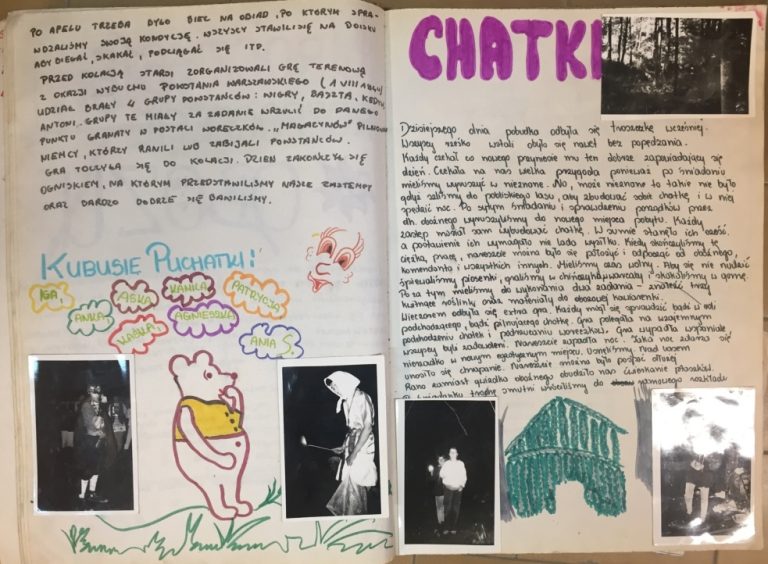 PO APELU TRZEBA BYŁO BIEC NA OBIAD, PO KTÓRYM SPRA-
WDZALIŚMY SWOJĄ KONDYCJĘ. WSZYSCY STAWILI SIĘ NA BOISKU
ABY BIEGAĆ, SKAKAĆ, PODCIĄGAĆ SIĘ ITP.
PRZED KOLACJĄ STARSI ZORGANIZOWALI GRĘ TERENOWĄ
Z OKAZJI WYBUCHU POWSTANIA WARSZAWSKIEGO (1 VIII
UDZIAŁ BRAŁY 4 GRUPY POWSTAŃCÓW: NIGRY, BASZTA, KEDYW,
ANTONI. GRUPY TE MIAŁY ZA ZADANIE WRZUCIĆ DO DANEGO
PUNKTU GRANATY W POSTALI WORECZKÓW. „MAGAZYNÓW" PILNOWALI
NIEMCY, KTÓRZY RANILI LUB ZABIJALI POWSTAŃCÓW.
GRA TOCZYŁA SIĘ DO KOLACJI. DZIEŃ ZAKOŃCZYŁ SIĘ
OGNISKIEM, NA KTÓRYM PRZEDSTAWILIŚMY NASZE ZASTĘPY
ORAZ BARDZO DOBRZE SIĘ BAWILIŚMY.
KUBUSIE PUCHATKI:
IGA,
ANKA
ASKA
KAMILA
PATRYCJA
KAŚKA,
AGNIESZKA
ANIA S.
CHATKI
Dzisiejszego dnia pobudka odbyła się troszeczkę wcześniej.
Wszyscy rześko wstali obyło się nawet bez popędzania.
Każdy czekał co nowego przyniesie mu ten dobrze zapowiadający się
dzień. Czekała na nas wielka przygoda ponieważ po śniadaniu
mieliśmy wyruszyć w nieznane. No, może nieznane to takie nie było
gdyż szliśmy do pobliskiego lasu, aby zbudować sobie chatkę i w niej
spędzić noc. Po sytym śniadaniu i sprawdzeniu porządków przez
dh. oboźnego wyruszyliśmy do nowego miejsca pobytu. Każdy
zastęp musiał sam wybudować chatkę. W sumie stanęło ich sześć,
a postawienie ich wymagało nie lada wysiłku. Kiedy skończyliśmy tę
ciężką pracę, nareszcie można było się położyć i odpocząć od oboźnego,
komendanta i wszystkich innych. Mieliśmy czas wolny. Aby się nie nudzić
śpiewaliśmy piosenki, graliśmy w i skakaliśmy w gumę.
Poza tym mieliśmy do wykonania dwa zadania - znaleźć trzy
kwitnące roślinki oraz materiały do obozowej kawiarenki.
Wieczorem odbyła się extra gra. Każdy miał się sprawdzić bądź w roli
podchodzącego, bądź pilnującego chatkę. Gra polegała na wzajemnym
podchodzeniu chatek i podrzucaniu woreczków. Gra wypadła wspaniale
wszyscy byli zadowoleni. Nareszcie zapadła noc. Jaka noc zdarza się
nierzadko w nowym egzotycznym miejscu. Usnęliśmy. Nad lasem
unosiło się chrapanie. Nareszcie można było pospać dłużej.
Rano zamiast gwizdka oboźnego obudziło nas ćwierkanie ptaszków.
śniadanku trochę smutni wróciliśmy do ramowego rozkładu